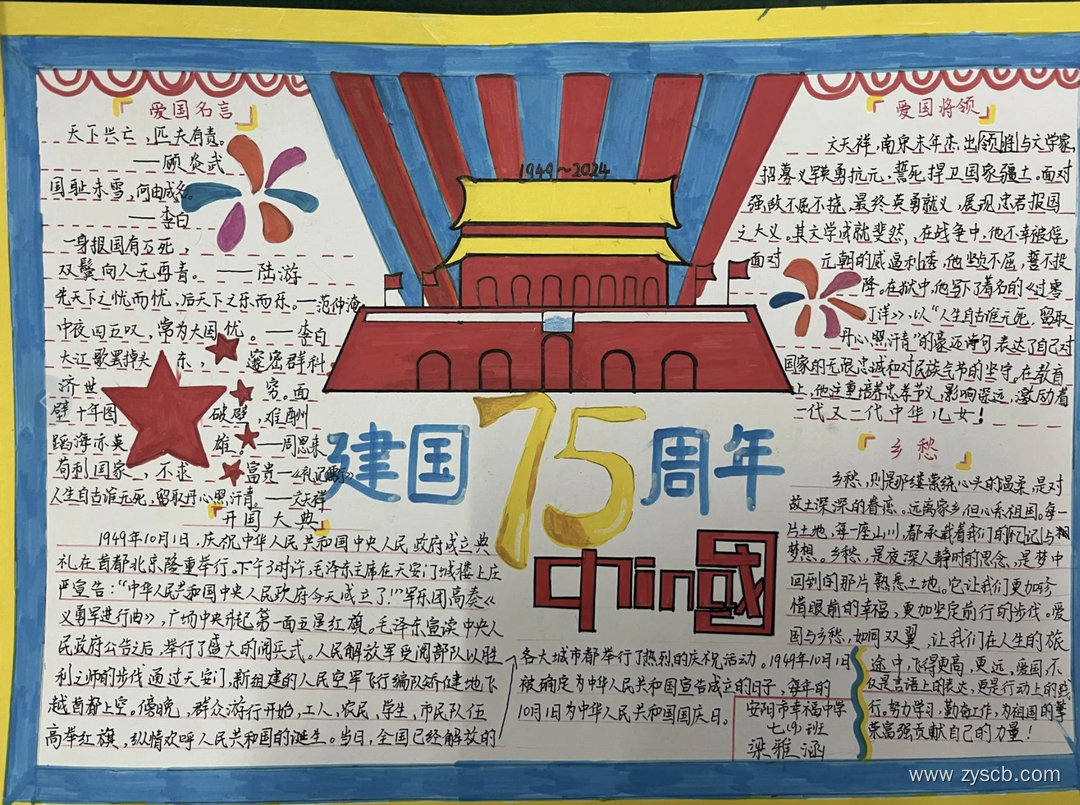 爱国名言
天下兴亡，匹夫有责。
——顾炎武
国耻未雪，何由成名
——李白
一身报国有万死，
双鬓向人无再青。——陆游
先天下之忧而忧，后天下之乐而乐。——范仲淹
中夜四五叹，常为大国忧。——李白
大江歌罢掉头东，邃密群科
济世穷。面
壁十年图破壁，难酬
蹈海亦英雄。——周恩来
苟利国家，不求富贵——《礼记》
人生自古谁无死，留取丹心照汗青。——文天祥
开国大典
1949年10月1日，庆祝中华人民共和国中央人民政府成立典
礼在首都北京隆重举行。下午3时许，毛泽东主席在天安门城楼上庄
严宣告：“中华人民共和国中央人民政府今天成立了！”军乐团高奏《
义勇军进行曲》，广场中央升起第一面五星红旗。毛泽东宣读中央人
民政府公告之后，举行了盛大的阅兵式。人民解放军受阅部队以胜
利之师的步伐通过天安门，新组建的人民空军飞行编队矫健地飞
越首都上空。傍晚，群众游行开始，工人、农民、学生、市民队伍
高举红旗，纵情欢呼人民共和国的诞生。当日，全国已经解放的
各大城市都举行了热烈的庆祝活动。1949年10月1日
被确定为中华人民共和国宣告成立的日子，每年的
10月1日为中华人民共和国国庆日。
1949~2024
建国75周年
china
國
爱国将领
文天祥，南宋末年杰出领将与文学家，
招募义军英勇抗元，誓死捍卫国家疆土。面对
强敌不屈不挠，最终英勇就义，展现忠君报国
之大义。其文学成就斐然，在战争中，他不幸被俘，
面对元朝的威逼利诱，他坚贞不屈，誓不投
降。在狱中，他写下了著名的《过零
丁洋》，以“人生自古谁无死，留取
丹心照汗青”的豪迈诗句表达了自己对
国家的无限忠诚和对民族气节的坚守。在教育
上，他注重培养忠孝节义，影响深远，激励着
一代又一代中华儿女！
乡愁
乡愁，则是那缕萦绕心头的温柔，是对
故土深深的眷恋。远离家乡，但心系祖国。每一
片土地，每一座山川，都承载着我们的记忆与
梦想。乡愁，是夜深人静时的思念，是梦中
回到的那片熟悉土地。它让我们更加珍
惜眼前的幸福，更加坚定前行的步伐。爱
国与乡愁，如同双翼，让我们在人生的旅
途中，飞得更高，更远，爱国，不
仅是言语上的表达，更是行动上的践
行。努力学习，勤奋工作，为祖国的繁
荣富强贡献自己的力量！
安阳市幸福中学
七（9）班
梁雅涵
www.zyscb.com